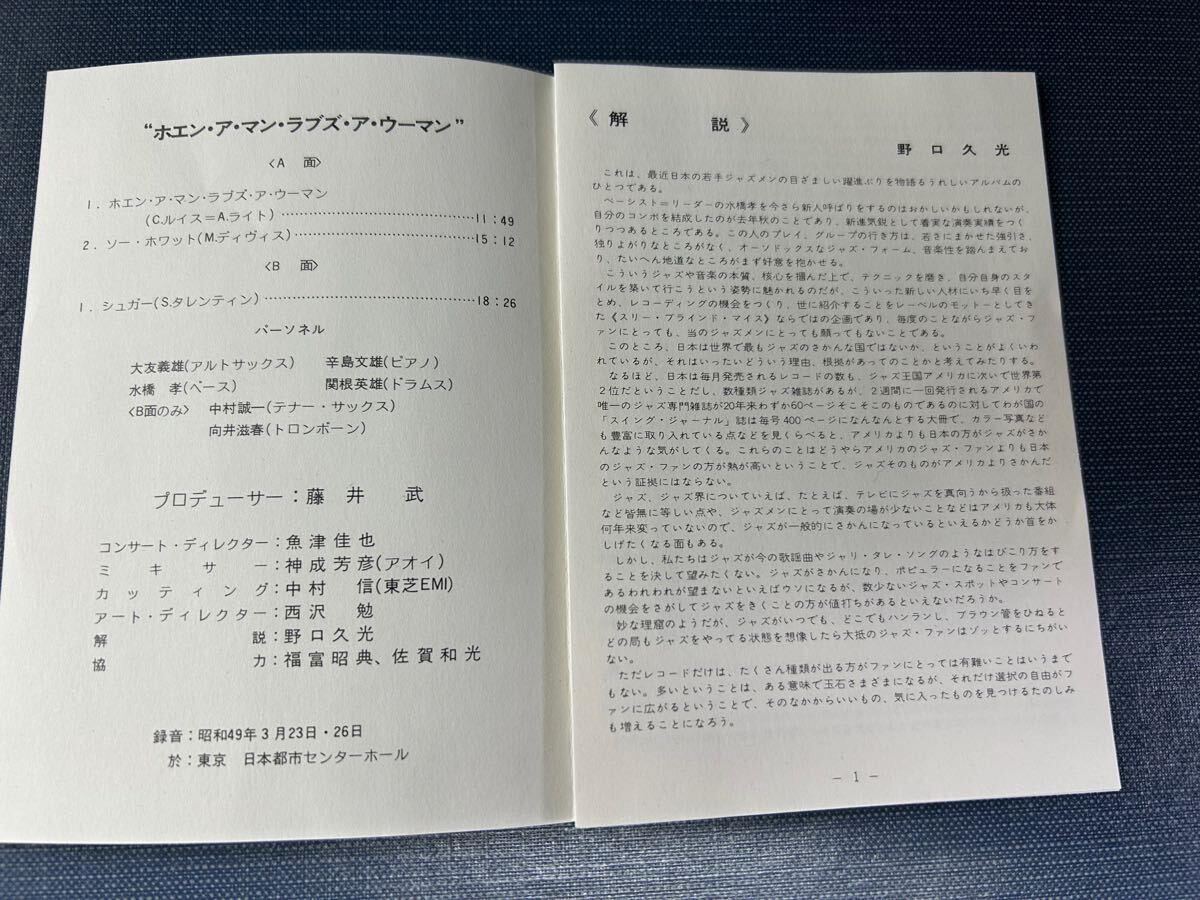 “ホエン・ア・マン・ラブズ・ア・ウーマン”
〈A 面〉
1．ホエン・ア・マン・ラブズ・ア・ウーマン
(C.ルイス＝A.ライト)……………………………11:49
2．ソー・ホワット(M.ディヴィス)……………………………15:12
〈B 面〉
1．シュガー(S.タレンティン)……………………………18:26
パーソネル
大友義雄(アルトサックス) 辛島文雄(ピアノ)
水橋 孝(ベース) 関根英雄(ドラムス)
〈B面のみ〉 中村誠一(テナー・サックス)
向井滋春(トロンボーン)
プロデューサー：藤 井 武
コンサート・ディレクター：魚 津 佳 也
ミキサー：神成芳彦(アオイ)
カッティング：中村 信(東芝EMI)
アート・ディレクター：西 沢 勉
解 説：野 口 久 光
協 力：福富昭典、佐賀和光
録音：昭和49年3月23日・26日
於：東京 日本都市センターホール
《解 説》
野 口 久 光
これは、最近日本の若手ジャズメンの目ざましい躍進ぶりを物語るうれしいアルバムの
ひとつである。
ベーシスト＝リーダーの水橋孝を今さら新人呼ばりをするのはおかしいかもしれないが、
自分のコンボを結成したのが去年秋のことであり、新進気鋭として着実な演奏実績をつく
りつつあるところである。この人のプレイ、グループの行き方は、若さにまかせた強引さ、
独りよがりなところがなく、オーソドックスなジャズ・フォーム、音楽性を踏んまえてお
り、たいへん地道なところがまず好意を抱かせる。
こういうジャズや音楽の本質、核心を掴んだ上で、テクニックを磨き、自分自身のスタ
イルを築いて行こうという姿勢に魅かれるのだが、こういった新しい人材にいち早く目を
とめ、レコーディングの機会をつくり、世に紹介することをレーベルのモットーとしてき
た《スリー・ブラインド・マイス》ならではの企画であり、毎度のことながらジャズ・フ
ァンにとっても、当のジャズメンにとっても願ってもないことである。
このところ、日本は世界で最もジャズのさかんな国ではないか、ということがよくいわ
れているが、それはいったいどういう理由、根拠があってのことかと考えてみたりする。
なるほど、日本は毎月発売されるレコードの数も、ジャズ王国アメリカに次いで世界第
2位だということだし、数種類ジャズ雑誌があるが、2週間に一回発行されるアメリカで
唯一のジャズ専門雑誌が20年来わずか60ページそこそこのものであるのに対してわが国の
「スイング・ジャーナル」誌は毎号400ページになんなんとする大冊で、カラー写真など
も豊富に取り入れている点などを見くらべると、アメリカよりも日本の方がジャズがさか
んなような気がしてくる。これらのことはどうやらアメリカのジャズ・ファンよりも日本
のジャズ・ファンの方が熱が高いということで、ジャズそのものがアメリカよりさかんだ
という証拠にはならない。
ジャズ、ジャズ界についていえば、たとえば、テレビにジャズを真向うから扱った番組
など皆無に等しい点や、ジャズメンにとって演奏の場が少ないことなどはアメリカも大体
何年来変っていないので、ジャズが一般的にさかんになっているといえるかどうか首をか
しげたくなる面もある。
しかし、私たちはジャズが今の歌謡曲やジャリ・タレ・ソングのようなはびこり方をす
ることを決して望みたくない。ジャズがさかんになり、ポピュラーになることをファンで
あるわれわれが望まないといえばウソになるが、数少ないジャズ・スポットやコンサート
の機会をさがしてジャズをきくことの方が値打ちがあるといえないだろうか。
妙な理窟のようだが、ジャズがいつでも、どこでもハンランし、ブラウン管をひねると
どの局もジャズをやってる状態を想像したら大抵のジャズ・ファンはゾッとするにちがい
ない。
ただレコードだけは、たくさん種類が出る方がファンにとっては有難いことはいうまで
もない。多いということは、ある意味で玉石さまざまになるが、それだけ選択の自由がフ
ァンに広がるということで、そのなかからいいもの、気に入ったものを見つけるたのしみ
も増えることになろう。
－ 1 －